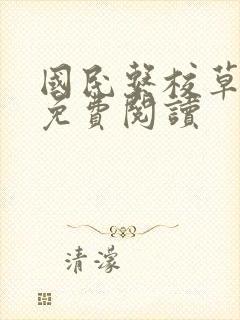 國民繫校草
免費閱讀
清濛